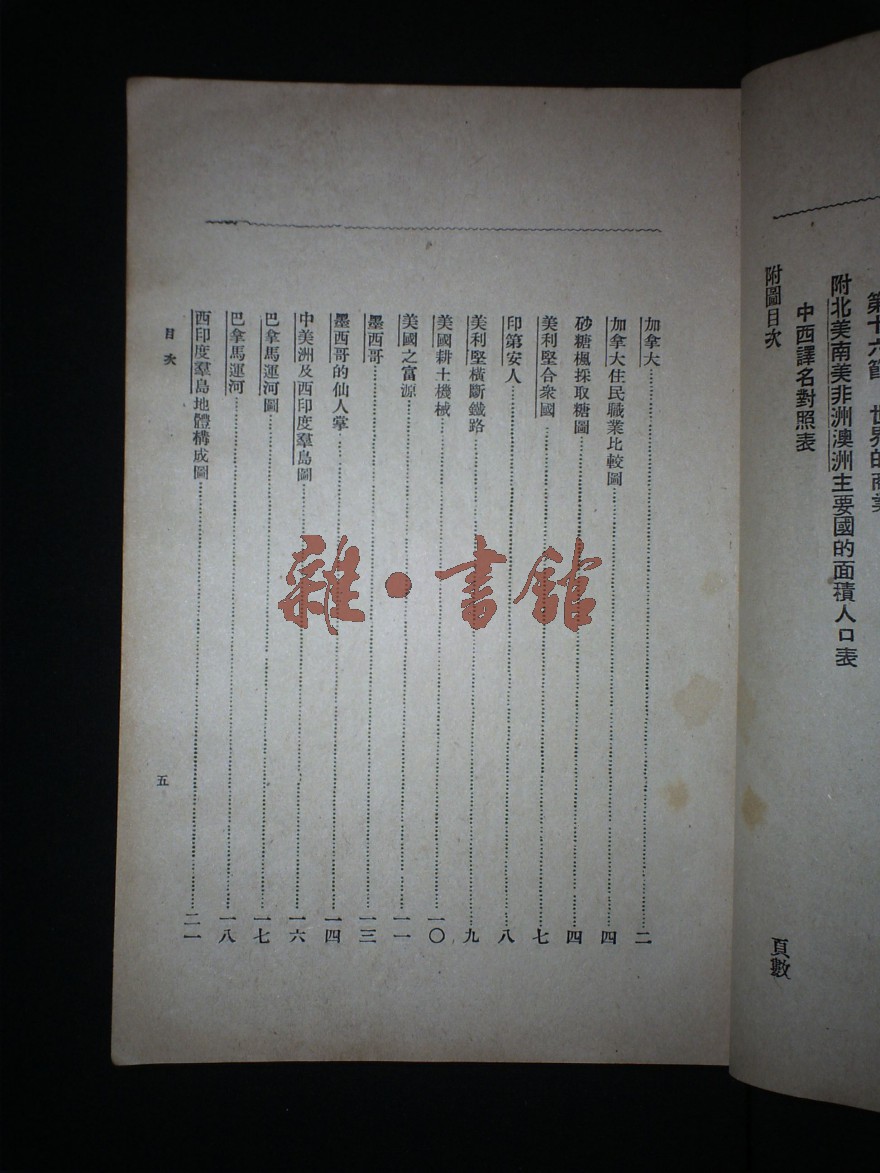 第十六節 世界的商業
附北美南美非洲澳洲主要國的面積人口表
中西譯名對照表
附圖目次
頁數
加拿大……二
加拿大住民職業比較圖……四
砂糖楓採取糖圖……四
美利堅合衆國……七
印第安人……八
美利堅橫斷鐵路……九
美國耕土機械……一〇
美國之富源……一一
墨西哥……一三
墨西哥的仙人掌……一四
中美洲及西印度羣島圖……一六
巴拿馬運河圖……一七
巴拿馬運河……一八
西印度羣島地體構成圖……二一
目次
五
雜·書館